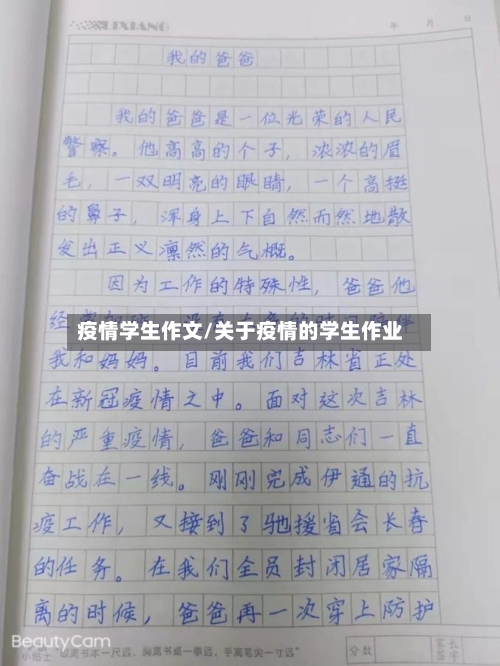 LIXIANG
年 月 日
我的爸爸
我的爸爸是一位光荣的人民
警察。他高高的个子，浓浓的眉
毛，一双明亮的眼睛，一个高挺
的鼻子，浑身上下自然而然地散
发出正义凛然的气概。
因为工作的特殊性，爸爸他
经
疫情学生作文/关于疫情的学生作业
我和妈妈。目前我们吉林省正处
在新冠疫情之中。面对这次吉林
的严重疫情，爸爸和同志们一直
奋战在一线。刚刚完成伊通的抗
疫工作，又接到了驰援省会长春
的任务。在我们全员封闭居家隔
离的时候，爸爸再一次穿上防护
BeautyCam
小贴士 眼离书本一尺远，胸离书桌一拳远，手离笔尖一寸远
分数
家长
签字